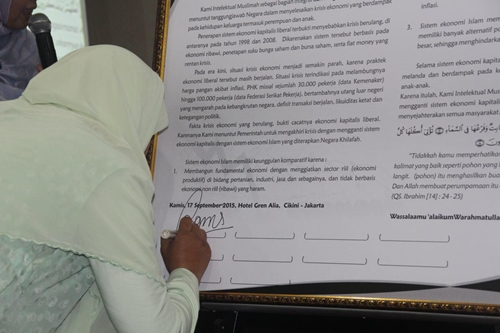 Kami Intelektual Muslimah sebagai bagian
menuntut tanggungjawab Negara dalam menyelesaikan krisis ekonomi yang berdampak
pada kehidupan keluarga termasuk perempuan dan anak.
Penerapan sistem ekonomi kapitalis liberal terbukti menyebabkan krisis berulang, di
antaranya pada tahun 1998 dan 2008. Dikarenakan sistem tersebut berbasis pada
ekonomi ribawi, penetapan suku bunga saham dan bursa saham, serta fiat money yang
rentan krisis.
Pada era kini, situasi krisis ekonomi menjadi semakin parah, karena praktek
ekonomi liberal tersebut masih berjalan. Situasi krisis terindikasi pada melambungnya
harga pangan akibat inflasi, PHK missal sejumlah 30.000 pekerja (data Kemenaker)
hingga 100.000 pekerja (data Federasi Serikat Pekerja), bertambahnya utang luar negeri
yang mengarah pada kebangkrutan negara, defisit transaksi berjalan, likuiditas ketat dan
ketegangan politik.
Fakta krisis ekonomi yang berulang, bukti cacatnya ekonomi kapitalis liberal.
Karenanya Kami menuntut Pemerintah untuk mengakhiri krisis dengan mengganti sistem
ekonomi kapitalis dengan sistem ekonomi Islam yang diterapkan Negara Khilafah.
Sistem ekonomi Islam memiliki keunggulan komparatif karena :
1. Membangun fundamental ekonomi dengan menggiatkan sector riil (ekonomi
produktif) di bidang pertanian, industri, jasa dan sebagainya, dan tidak berbasis
ekonomi non riil (ribawi) yang haram.
Kamis, 17 September 2015, Hotel Gren Alia, Cikini - Jakarta
inflasi.
3. Sistem ekonomi Islam
memiliki banyak alternatif po
besar, sehingga menghindarka
Selama sistem ekonomi kap
melanda dan berdampak pada ke
anak-anak.
Karena itulah, Kami Intelektual Mus
mengganti sistem ekonomi kapit
menyejahterakan semua masyarakat.
"Tidakkah kamu memperhatikan
kalimat yang baik seperti pohon yang b
langit. (pohon) itu menghasilkan bua
Dan Allah membuat perumpamaan itu
(QS. Ibrahim [14] : 24 - 25)
Wassalaamu 'alaikumWarahmatulla